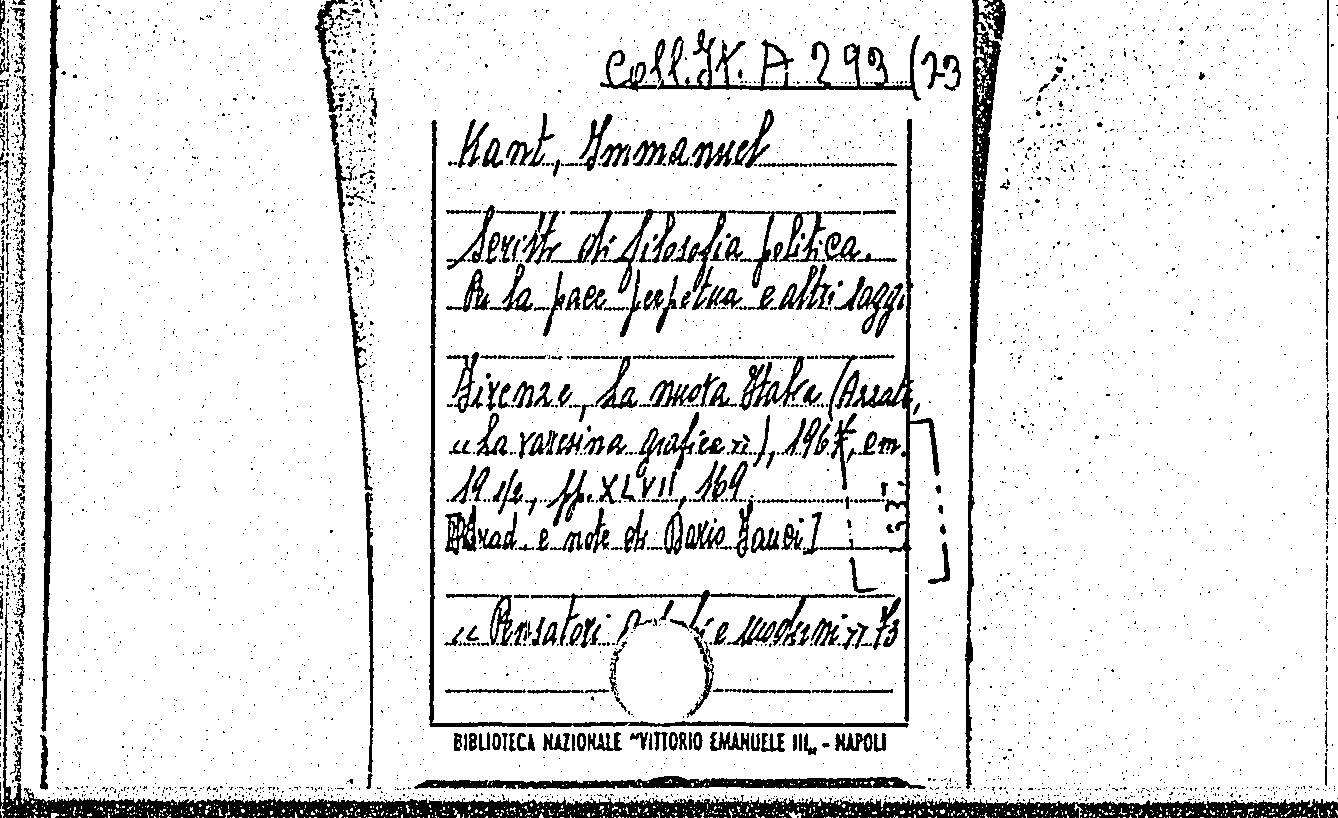 Coll. It. A 293 (73
Kant, Immanuel
Scritti di filosofia politica.
Per la pace perpetua e altri saggi
Firenze, La nuova Italia (Azzate,
«La varesina grafica»), 1967, cm.
19 1/2, pp. XLVII, 169
Trad. e note di Dario Faucci]
«Pensatori e moderni» 73
BIBLIOTECA NAZIONALE "VITTORIO EMANUELE III„ - NAPOLI